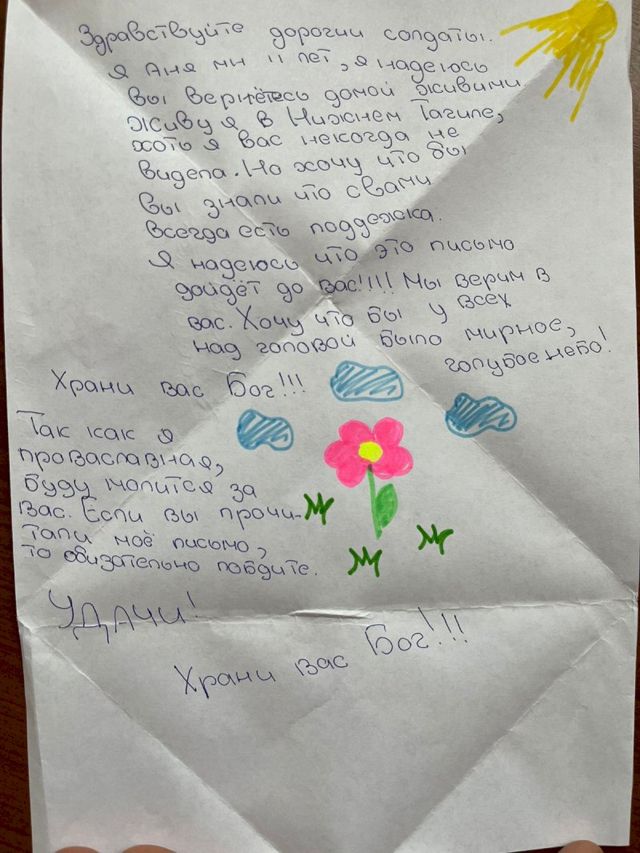 Здравствуйте дорогии солдаты.
Я Аня мн 11 лет, я надеюсь
вы вернётесь домой живими
живу я в Нижнем Тагиле,
хоть я вас некогда не
видела. Но хочу что бы
вы знали что свами
всегда есть поддежка.
Я надеюсь что это письмо
дойдёт до вас!!!! Мы верим в
вас. Хочу что бы у всех
над головой было мирное,
голубое небо!
Храни вас Бог!!!
Так как я
проваславная,
буду молится за
вас. Если вы прочи-
тали моё письмо,
то обизательно победите.
УДАЧИ!
Храни вас Бог!!!